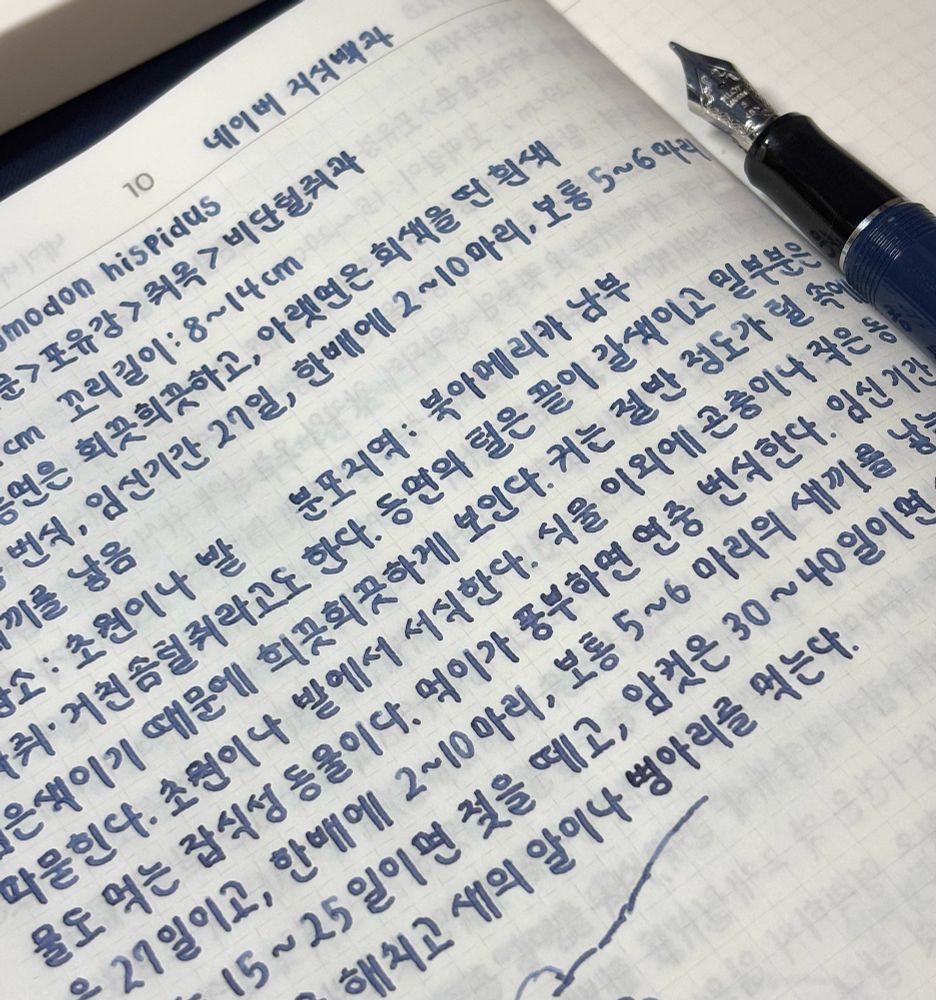 네이버 지식백과
10
modon hispidus
문>포유강>쥐목>비단털쥐과
cm 꼬리길이: 8~14cm
등면은 희끗희끗하고, 아랫면은 회색을 띤 흰색
번식, 임신기간 27일, 한배에 2~10마리, 보통 5~6마리
새끼를 낳음
장소: 초원이나 밭 분포지역: 북아메리카 남부
쥐·거친솜털쥐라고도 한다. 등면의 털은 끝이 갈색이고 밑부분은
검은색이기 때문에 희끗희끗하게 보인다. 귀는 절반 정도가 털 속에
파묻힌다. 초원이나 밭에서 서식한다. 식물 이외에 곤충이나 작은 동
물도 먹는 잡식성 동물이다. 먹이가 풍부하면 연중 번식한다. 임신기간
은 27일이고, 한배에 2~10마리, 보통 5~6 마리의 새끼를 낳는
15~25일이면 젖을 떼고, 암컷은 30~40일이면
해치고 새의 알이나 병아리를 먹는다.